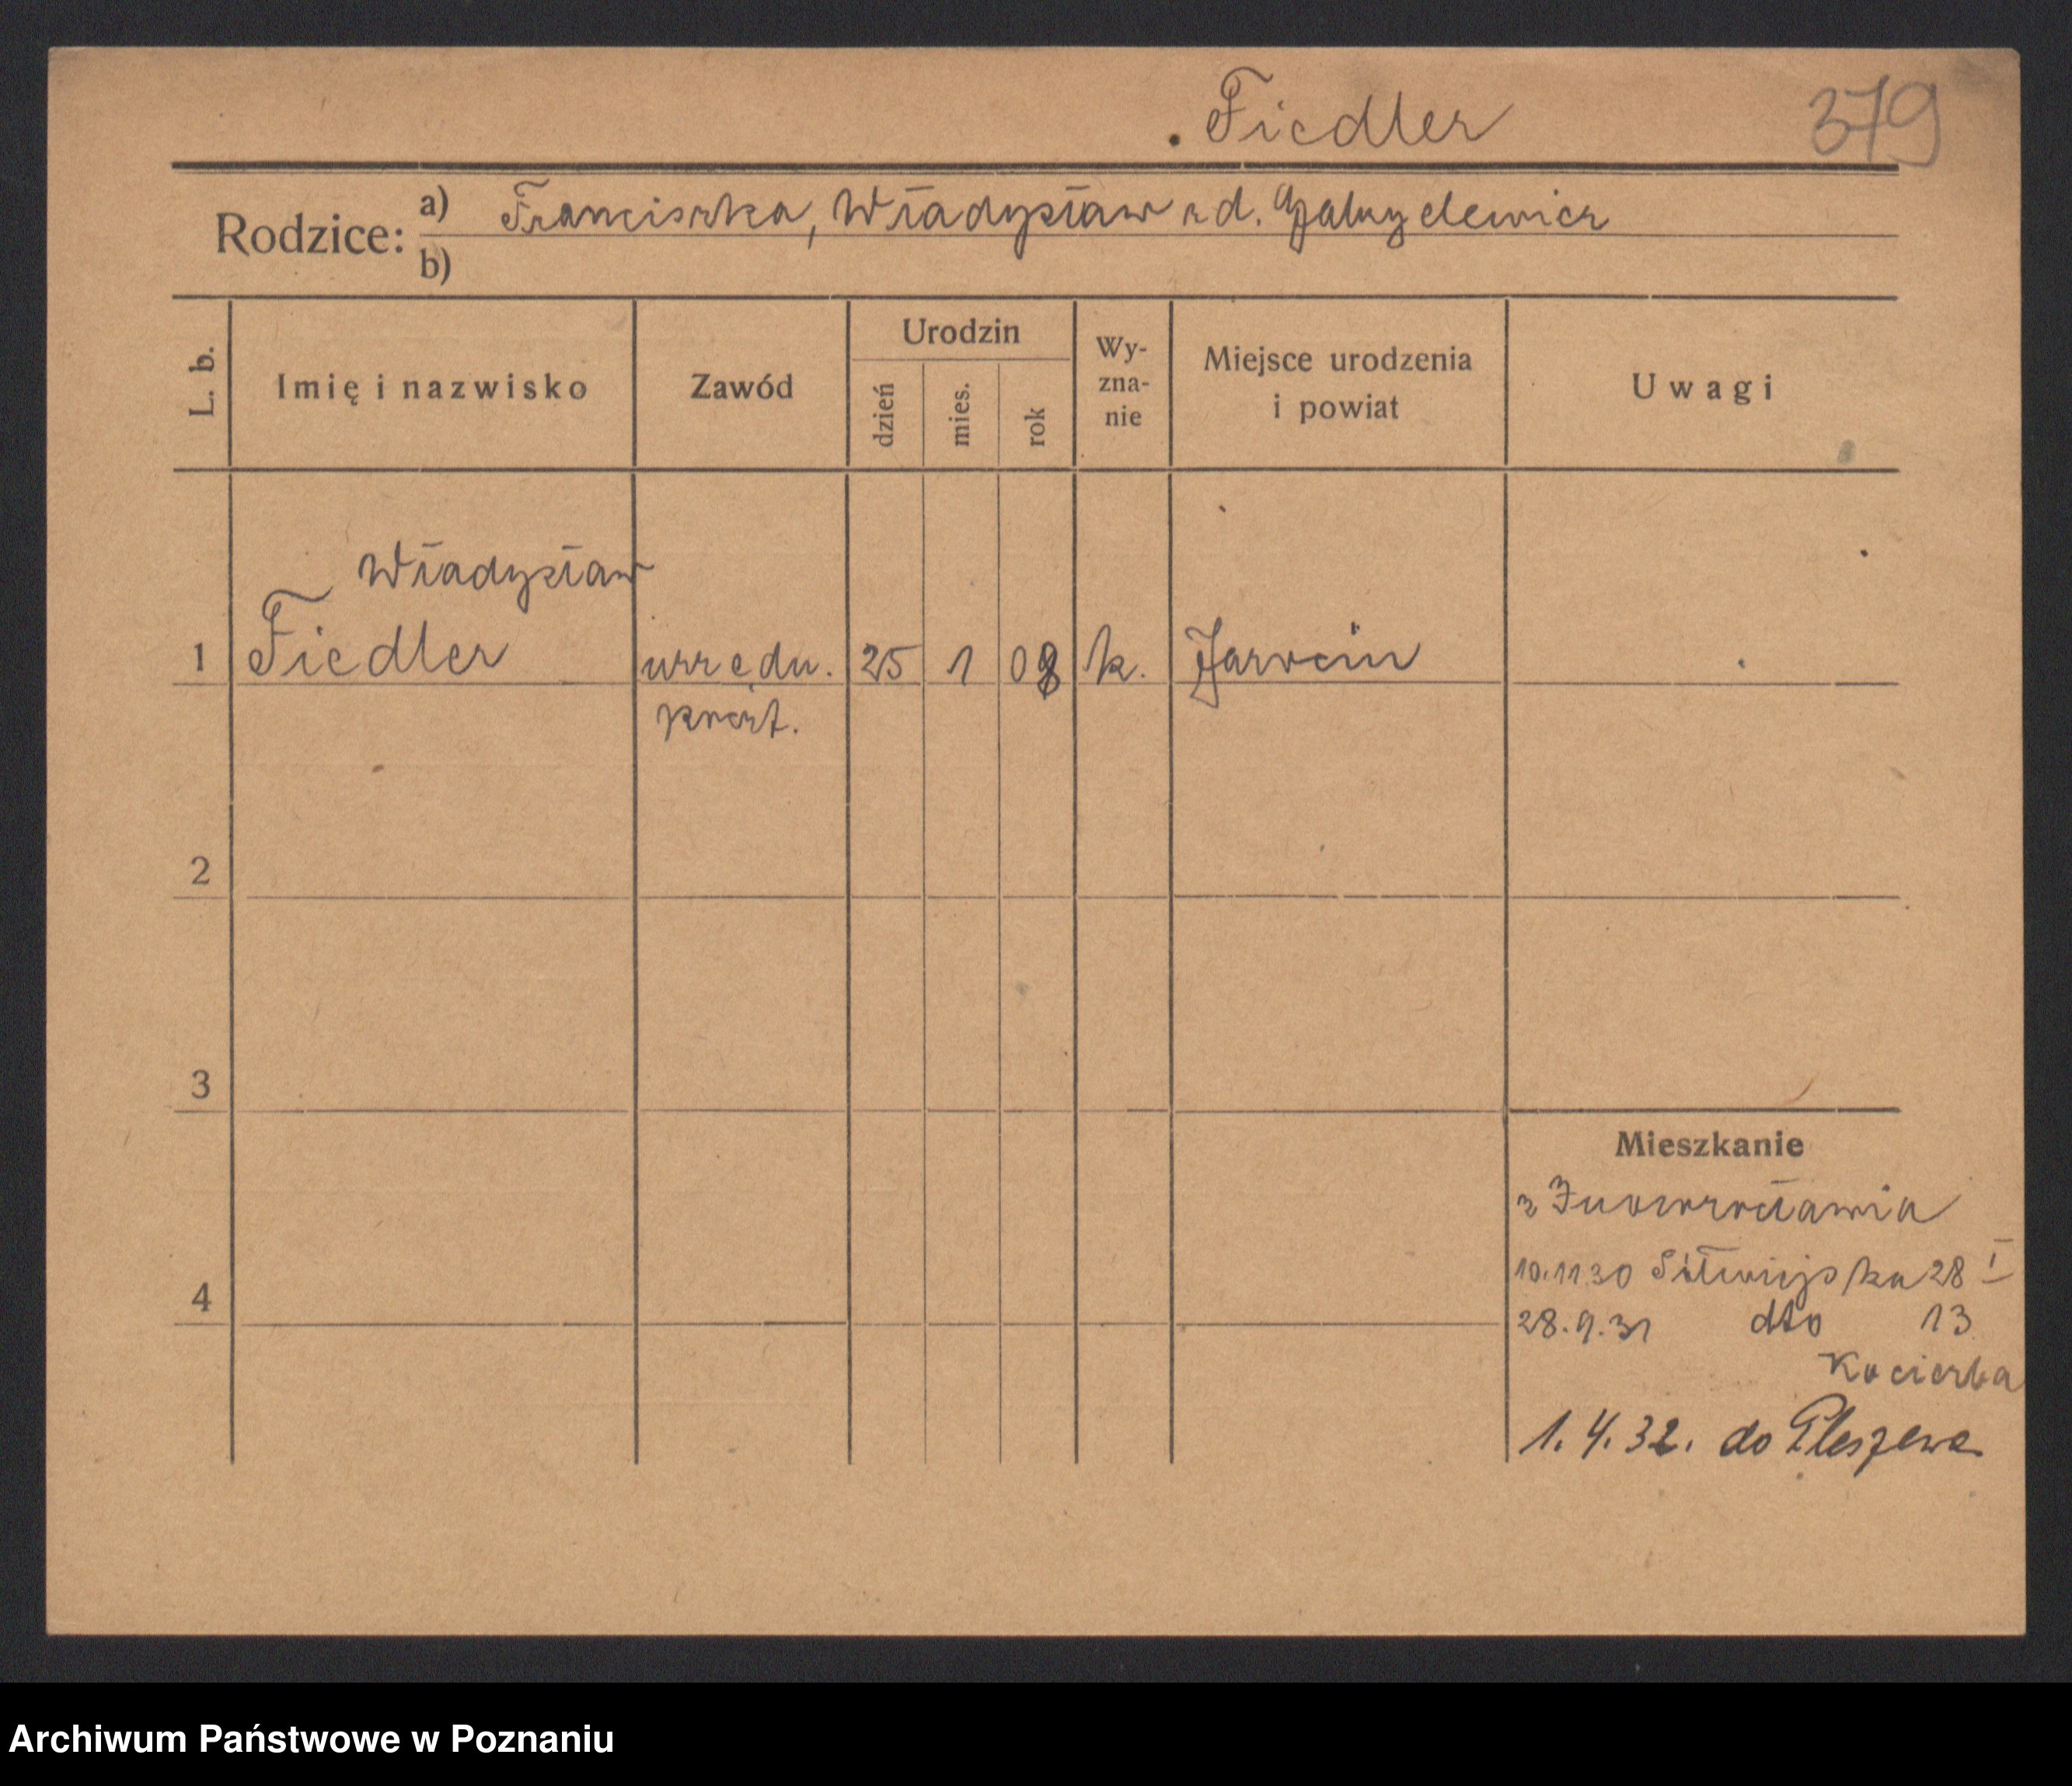 Fiedler 379
Rodzice: a) Franciszka, Władysław z d.
b)
L. b. Imię i nazwisko Zawód Urodzin dzień mies. rok Wy-zna-nie Miejsce urodzenia i powiat Uwagi
Władysław
1 Fiedler urzędn. 25 1 08 k. Jarocin
poczt.
2
3
Mieszkanie
z Inowrocławia
10.11.30 28 I
4
28.9.31 dto 13
Kocierba
1.4.32. do Pleszewa
Archiwum Państwowe w Poznaniu